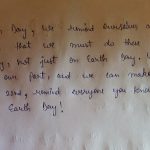 Day, we remind ourselves a
that we must do these
, not just on Earth Day. W
our part, and we can make
22nd, remind everyone you know
Earth Day!